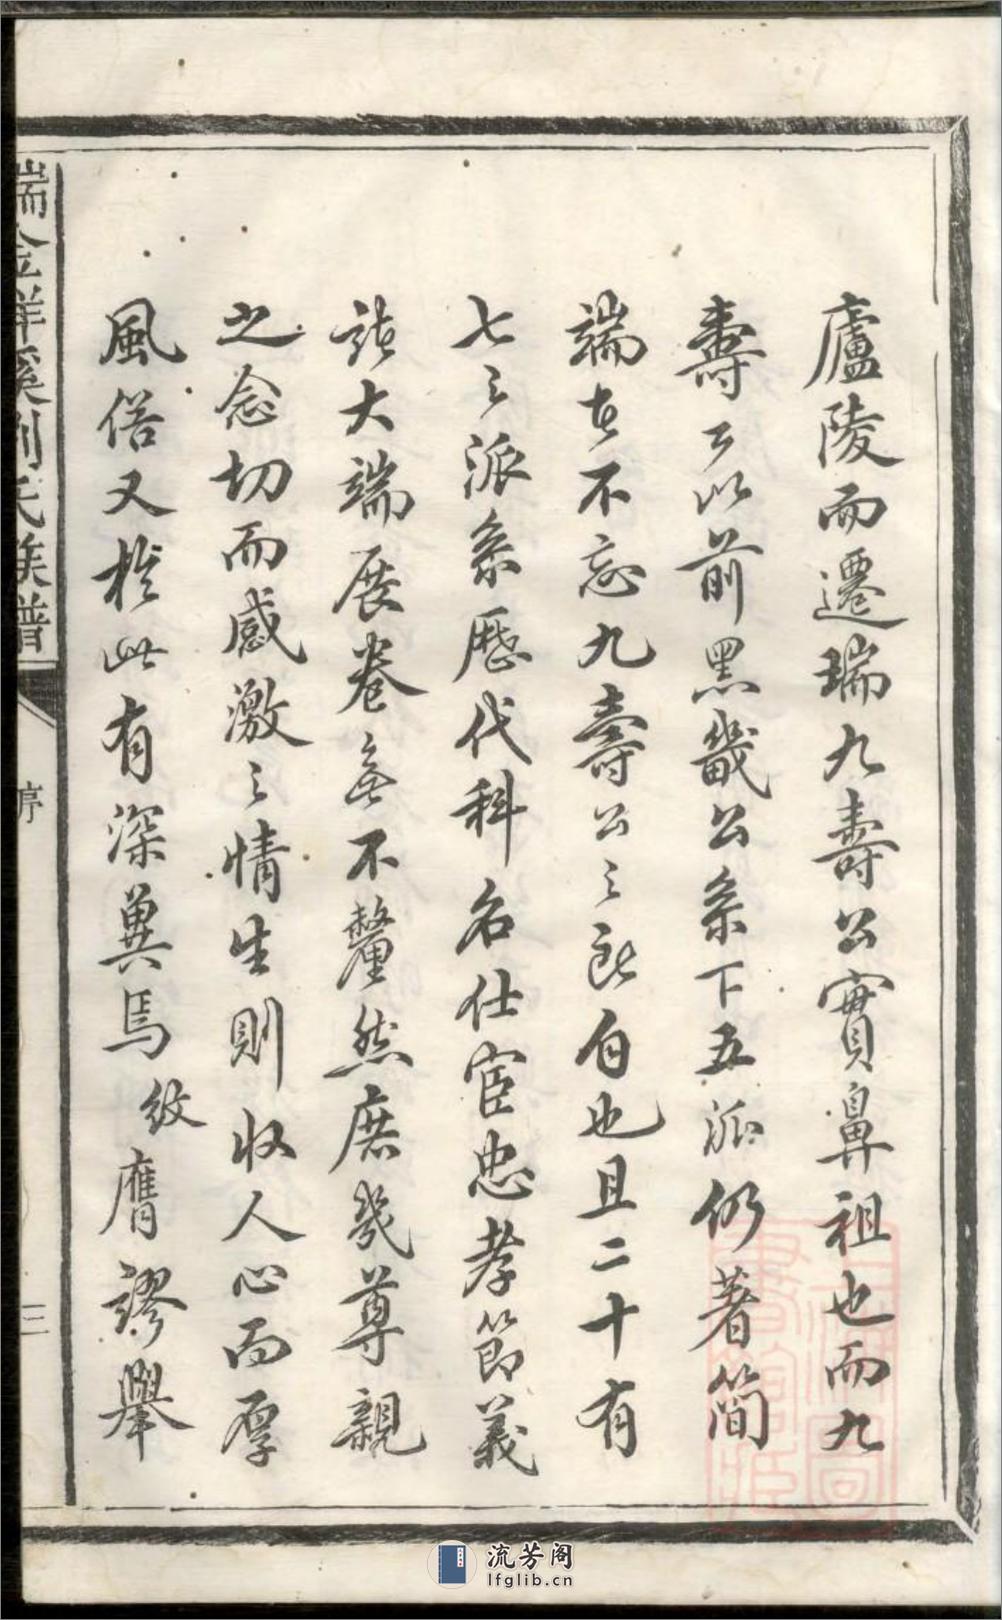 廬陵而遷瑞九壽公實鼻祖也而九
壽公以前黑畿公系下五派仍著簡
端者不忘九壽公之所自也且二十有
七之派系歷代科名仕宦忠孝節義
諸大端展卷無不釐然庶幾尊親
之念切而感激之情生則收人心而厚
風俗又於此有深冀焉紋膺謬舉
瑞金祥溪劉氏族譜
序
三
流芳阁
lfglib.cn